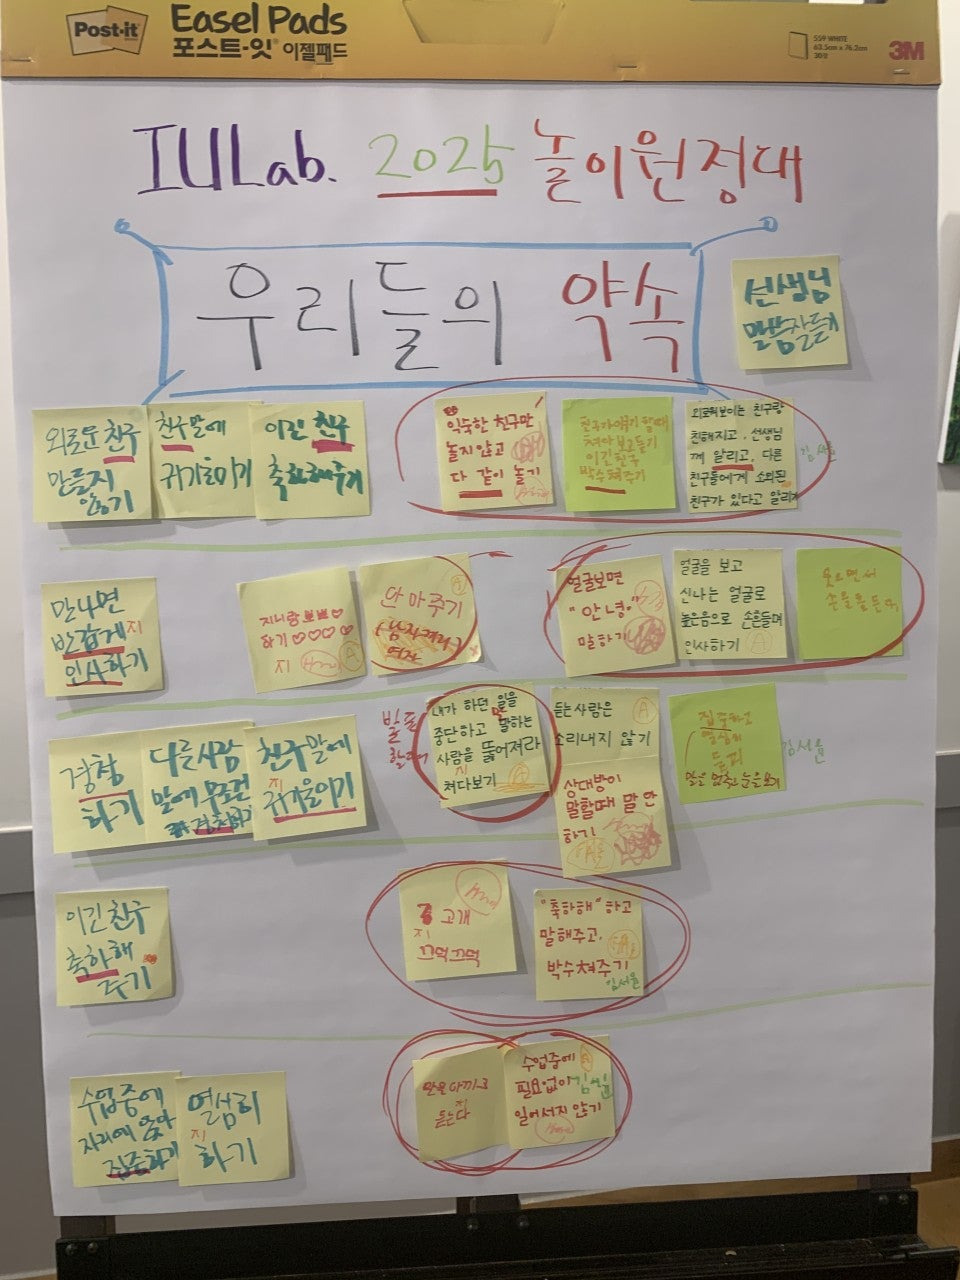 Post-it
Easel Pads
포스트-잇 이젤패드
559 WHITE
63.5cm x 76.2cm
30장
3M
IULab. 2025 놀이원정대
우리들의 약속
선생님
말씀잘듣기
외로운 친구
만들지
않기
친구말에
귀기울이기
이긴 친구
축하해주기
익숙한 친구만
놀지않고
다 같이 놀기
친구가 이야기 할때
쳐다보고듣기
이긴 친구
박수쳐주기
외로워보이는 친구랑
친해지고, 선생님
께 알리고, 다른
친구들에게 소외된
친구가 있다고 알리기
만나면
반갑게 지
인사하기
지니랑 뽀뽀♡
하기♡♡♡♡
지
A
안아주기
A
얼굴보면
"안녕"
말하기
얼굴을 보고
신나는 얼굴로
높은음으로 손을들며
인사하기 A
웃으면서
손을 흔든다.
경청
하기
다른사람
말에 무조건
경청하기
친구말에
지
귀기울이기
내가 하던 일을
중단하고 말하는
사람을 뚫어져라
지
쳐다보기 A
듣는사람은 A
소리내지 않기
상대방이
말할때 말 안
하기
집중하고
열심히
듣기
말을 멈추고 눈을 보기
김서윤
이긴 친구
축하해
주기
고개
지
끄덕끄덕
"축하해"하고
말해주고,
박수쳐주기
김서윤
수업중에
자리에 앉아
집중하기
열심히
지
하기
말을 아끼고
지
듣는다
수업중에
필요없이
일어서지 않기